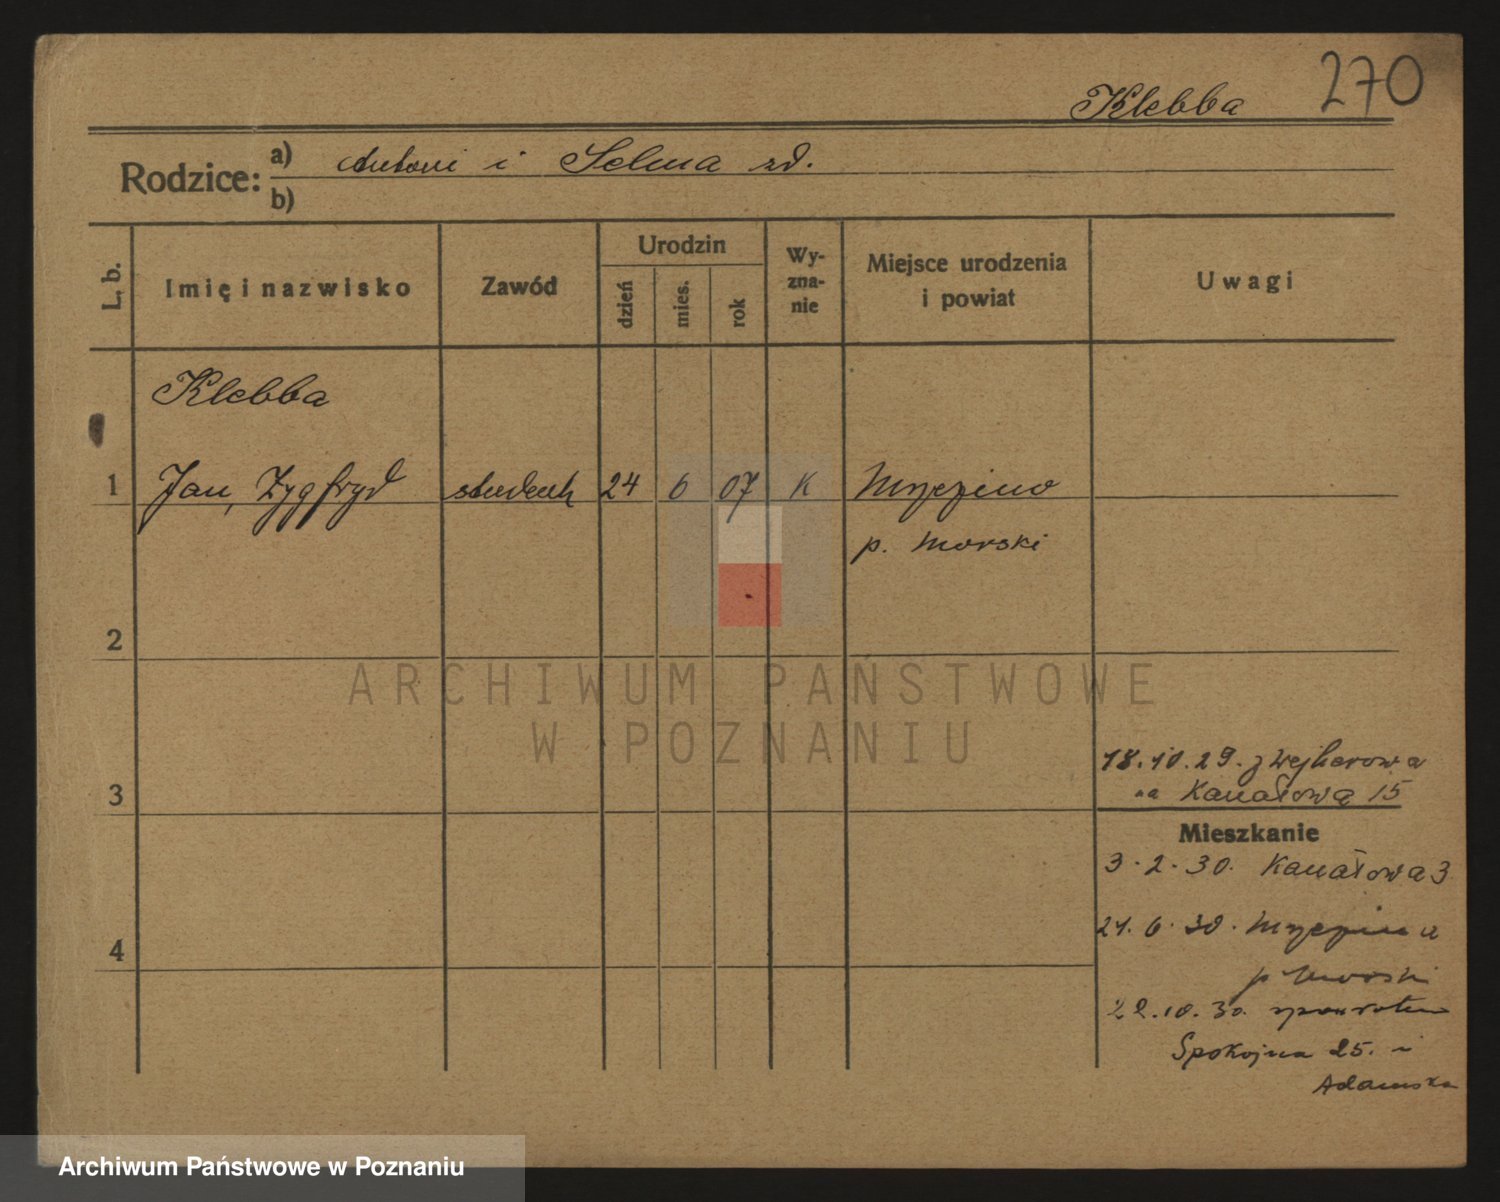 270
Klebba
Rodzice: a) Antoni i Selma zd.
b)
L. b.
Imię i nazwisko
Zawód
Urodzin
dzień
mies.
rok
Wy-
zna-
nie
Miejsce urodzenia
i powiat
Uwagi
Klebba
1 Jan, Zygfryd student 24 6 07 K Mrzezino
p. Morski
2
3
4
18.10.29. z Wejherowa
na Kanałową 15
Mieszkanie
3.2.30. Kanałowa 3
21.6.30. Mrzezino
p Morski
22.10.30. zpowrotem
Spokojna 25. i
Adamska
ARCHIWUM PAŃSTWOWE
W POZNANIU
Archiwum Państwowe w Poznaniu